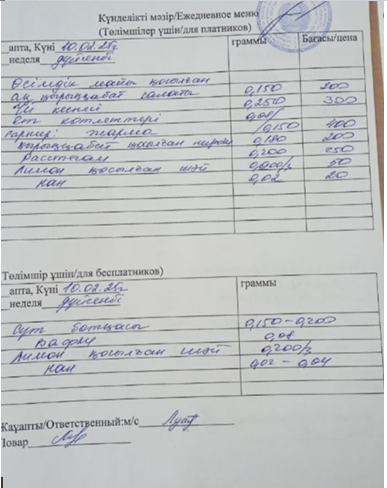 Күнделікті мәзір/Ежедневное меню
(Төлімшілер үшін/для платников)
апта, Күні 10.02.25г граммы Бағасы/цена
неделя дүйсенбі
Өсімдік майы қосылған
ақ қырыққабат салаты 0,150 200
0,250 300
Ет котлеттері 0,08/
Гарнир: /0,150 400
қырыққабат қосылған пирожки 0,180 200
Расстегай 0,200 250
Лимон қосылған шай 50
Нан 0,02 20
Төлімшір үшін/для бесплатников)
апта, Күні 10.02.25г граммы
неделя дүйсенбі
Сүт ботқасы 0,150-0,200
Вафли 0,08
Лимон қосылған шай 0,200/
Нан 0,02 - 0,04
Жауапты/Ответственный:м/с
Повар